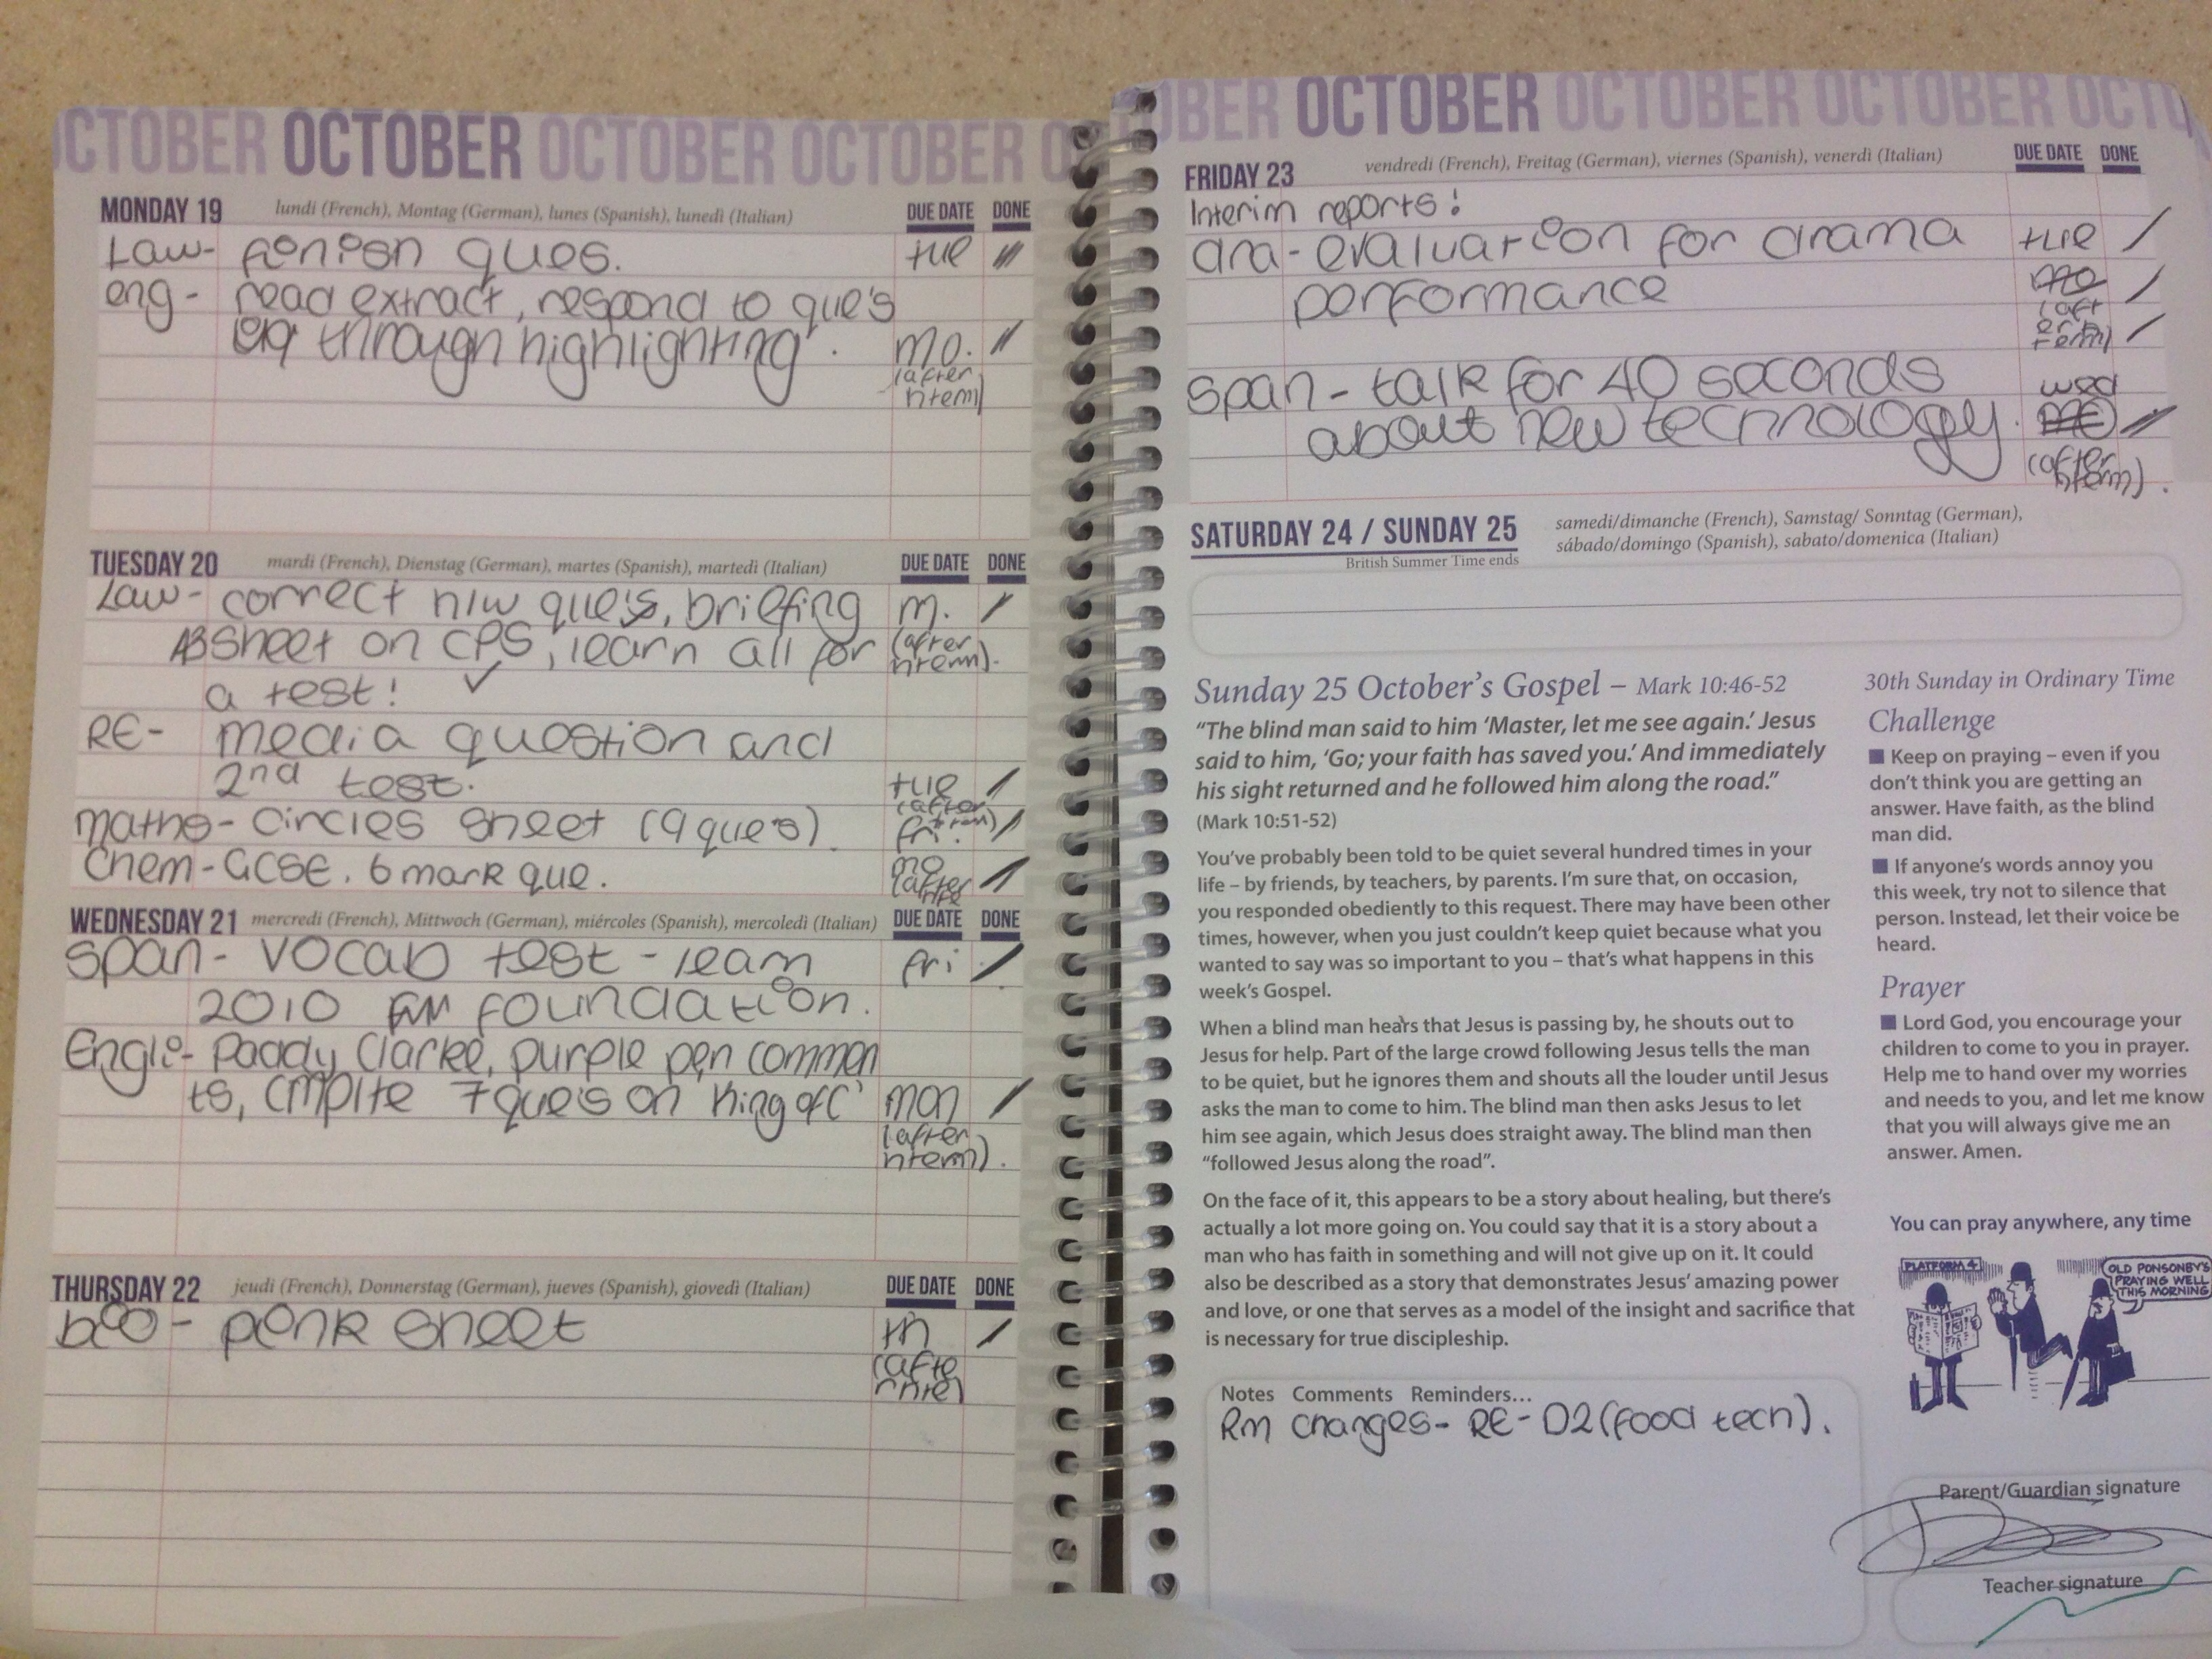 OCTOBER OCTOBER OCTOBER OCTOBER
MONDAY 19 lundi (French), Montag (German), lunes (Spanish), lunedì (Italian) DUE DATE DONE
Law- finish ques. tue
eng- read extract, respond to que's
through highlighting. mo.
(after
nterm)
TUESDAY 20 mardi (French), Dienstag (German), martes (Spanish), martedì (Italian) DUE DATE DONE
Law- correct h/w que's, briefing m.
A3 sheet on CPS, learn all for (after
nterm).
a test! ✓
RE- media question and
2nd test. tue
(after
term)
maths- circles sheet (9 que's). fri.
Chem- GCSE. 6 mark que. mo
(after
WEDNESDAY 21 mercredi (French), Mittwoch (German), miércoles (Spanish), mercoledì (Italian) DUE DATE DONE
Span- vocab test - learn fri
2010 foundation.
Engli- Paddy Clarke, purple pen commen
ts, cmplte 7 que's on King of C' mon
(after
nterm).
THURSDAY 22 jeudi (French), Donnerstag (German), jueves (Spanish), giovedì (Italian) DUE DATE DONE
bio- pink sheet th
(afte
OBER OCTOBER OCTOBER OCTOBER OCTO
FRIDAY 23 vendredi (French), Freitag (German), viernes (Spanish), venerdì (Italian) DUE DATE DONE
Interim reports!
dra- evaluation for drama tue
performance
(aft
er h
term)
span- talk for 40 seconds wed
about new technology.
(after
hterm).
SATURDAY 24 / SUNDAY 25 samedi/dimanche (French), Samstag/ Sonntag (German),
sábado/domingo (Spanish), sabato/domenica (Italian)
British Summer Time ends
Sunday 25 October's Gospel – Mark 10:46-52
"The blind man said to him 'Master, let me see again.' Jesus
said to him, 'Go; your faith has saved you.' And immediately
his sight returned and he followed him along the road."
(Mark 10:51-52)
You've probably been told to be quiet several hundred times in your
life – by friends, by teachers, by parents. I'm sure that, on occasion,
you responded obediently to this request. There may have been other
times, however, when you just couldn't keep quiet because what you
wanted to say was so important to you – that's what happens in this
week's Gospel.
When a blind man hears that Jesus is passing by, he shouts out to
Jesus for help. Part of the large crowd following Jesus tells the man
to be quiet, but he ignores them and shouts all the louder until Jesus
asks the man to come to him. The blind man then asks Jesus to let
him see again, which Jesus does straight away. The blind man then
"followed Jesus along the road".
On the face of it, this appears to be a story about healing, but there's
actually a lot more going on. You could say that it is a story about a
man who has faith in something and will not give up on it. It could
also be described as a story that demonstrates Jesus' amazing power
and love, or one that serves as a model of the insight and sacrifice that
is necessary for true discipleship.
30th Sunday in Ordinary Time
Challenge
■ Keep on praying – even if you
don't think you are getting an
answer. Have faith, as the blind
man did.
■ If anyone's words annoy you
this week, try not to silence that
person. Instead, let their voice be
heard.
Prayer
■ Lord God, you encourage your
children to come to you in prayer.
Help me to hand over my worries
and needs to you, and let me know
that you will always give me an
answer. Amen.
You can pray anywhere, any time
PLATFORM 4
OLD PONSONBY'S
PRAYING WELL
THIS MORNING
Notes Comments Reminders...
Rm changes- RE- D2 (food tech).
Parent/Guardian signature
Teacher signature